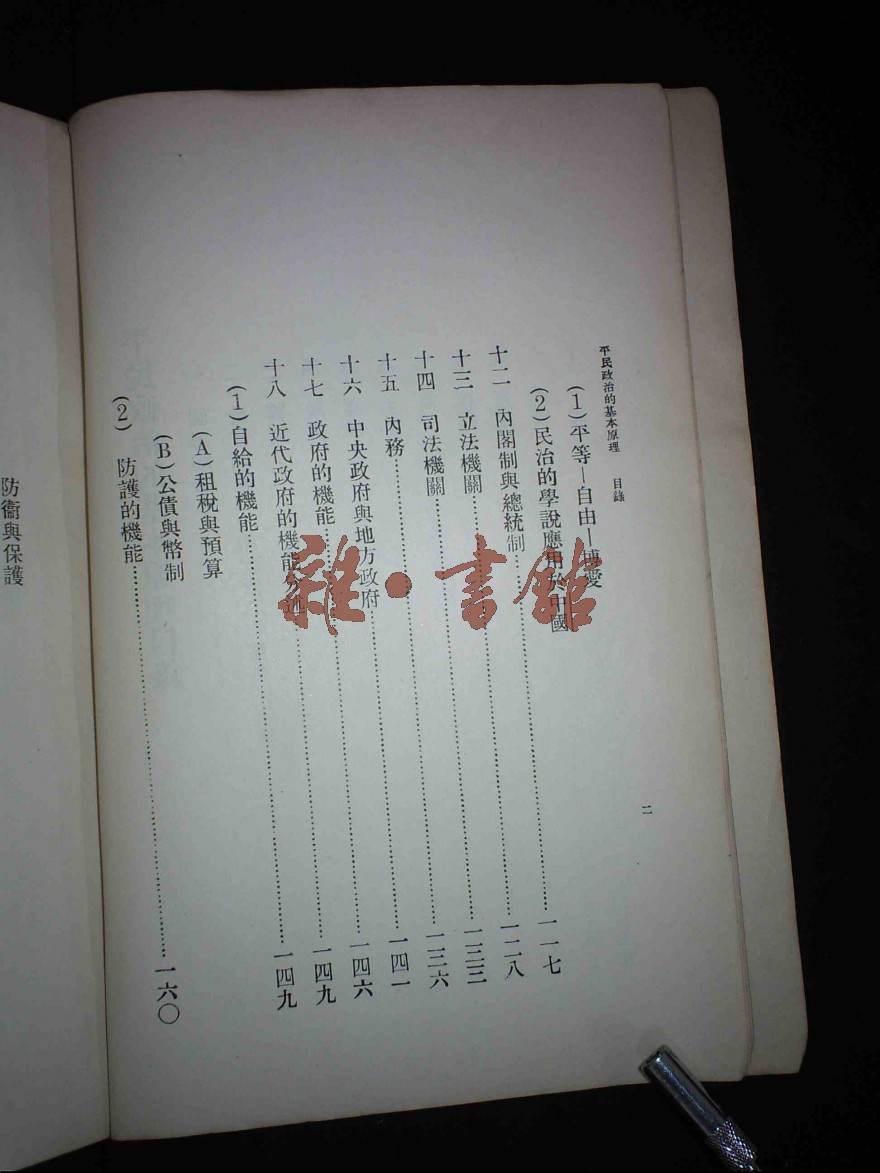 平民政治的基本原理 目錄 二
(1)平等—自由—博愛
(2)民治的學說應用於中國
十二 內閣制與總統制……………一一七
十三 立法機關……………一二八
十四 司法機關……………一三三
十五 內務……………一三六
十六 中央政府與地方政府……………一四一
十七 政府的機能……………一四六
十八 近代政府的機能分述……………一四九
(1)自給的機能……………一四九
(A)租稅與預算
(B)公債與幣制
(2) 防護的機能……………一六〇
防衞與保護
雜·書館